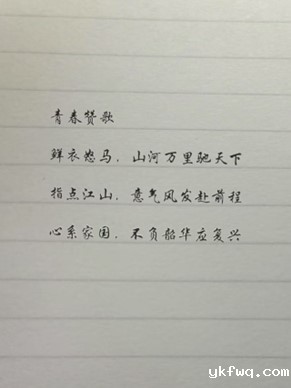 青春赞歌
鲜衣怒马，山河万里驰天下
指点江山，意气风发赴前程
心系家国，不负韶华应复兴
ykfwq.com